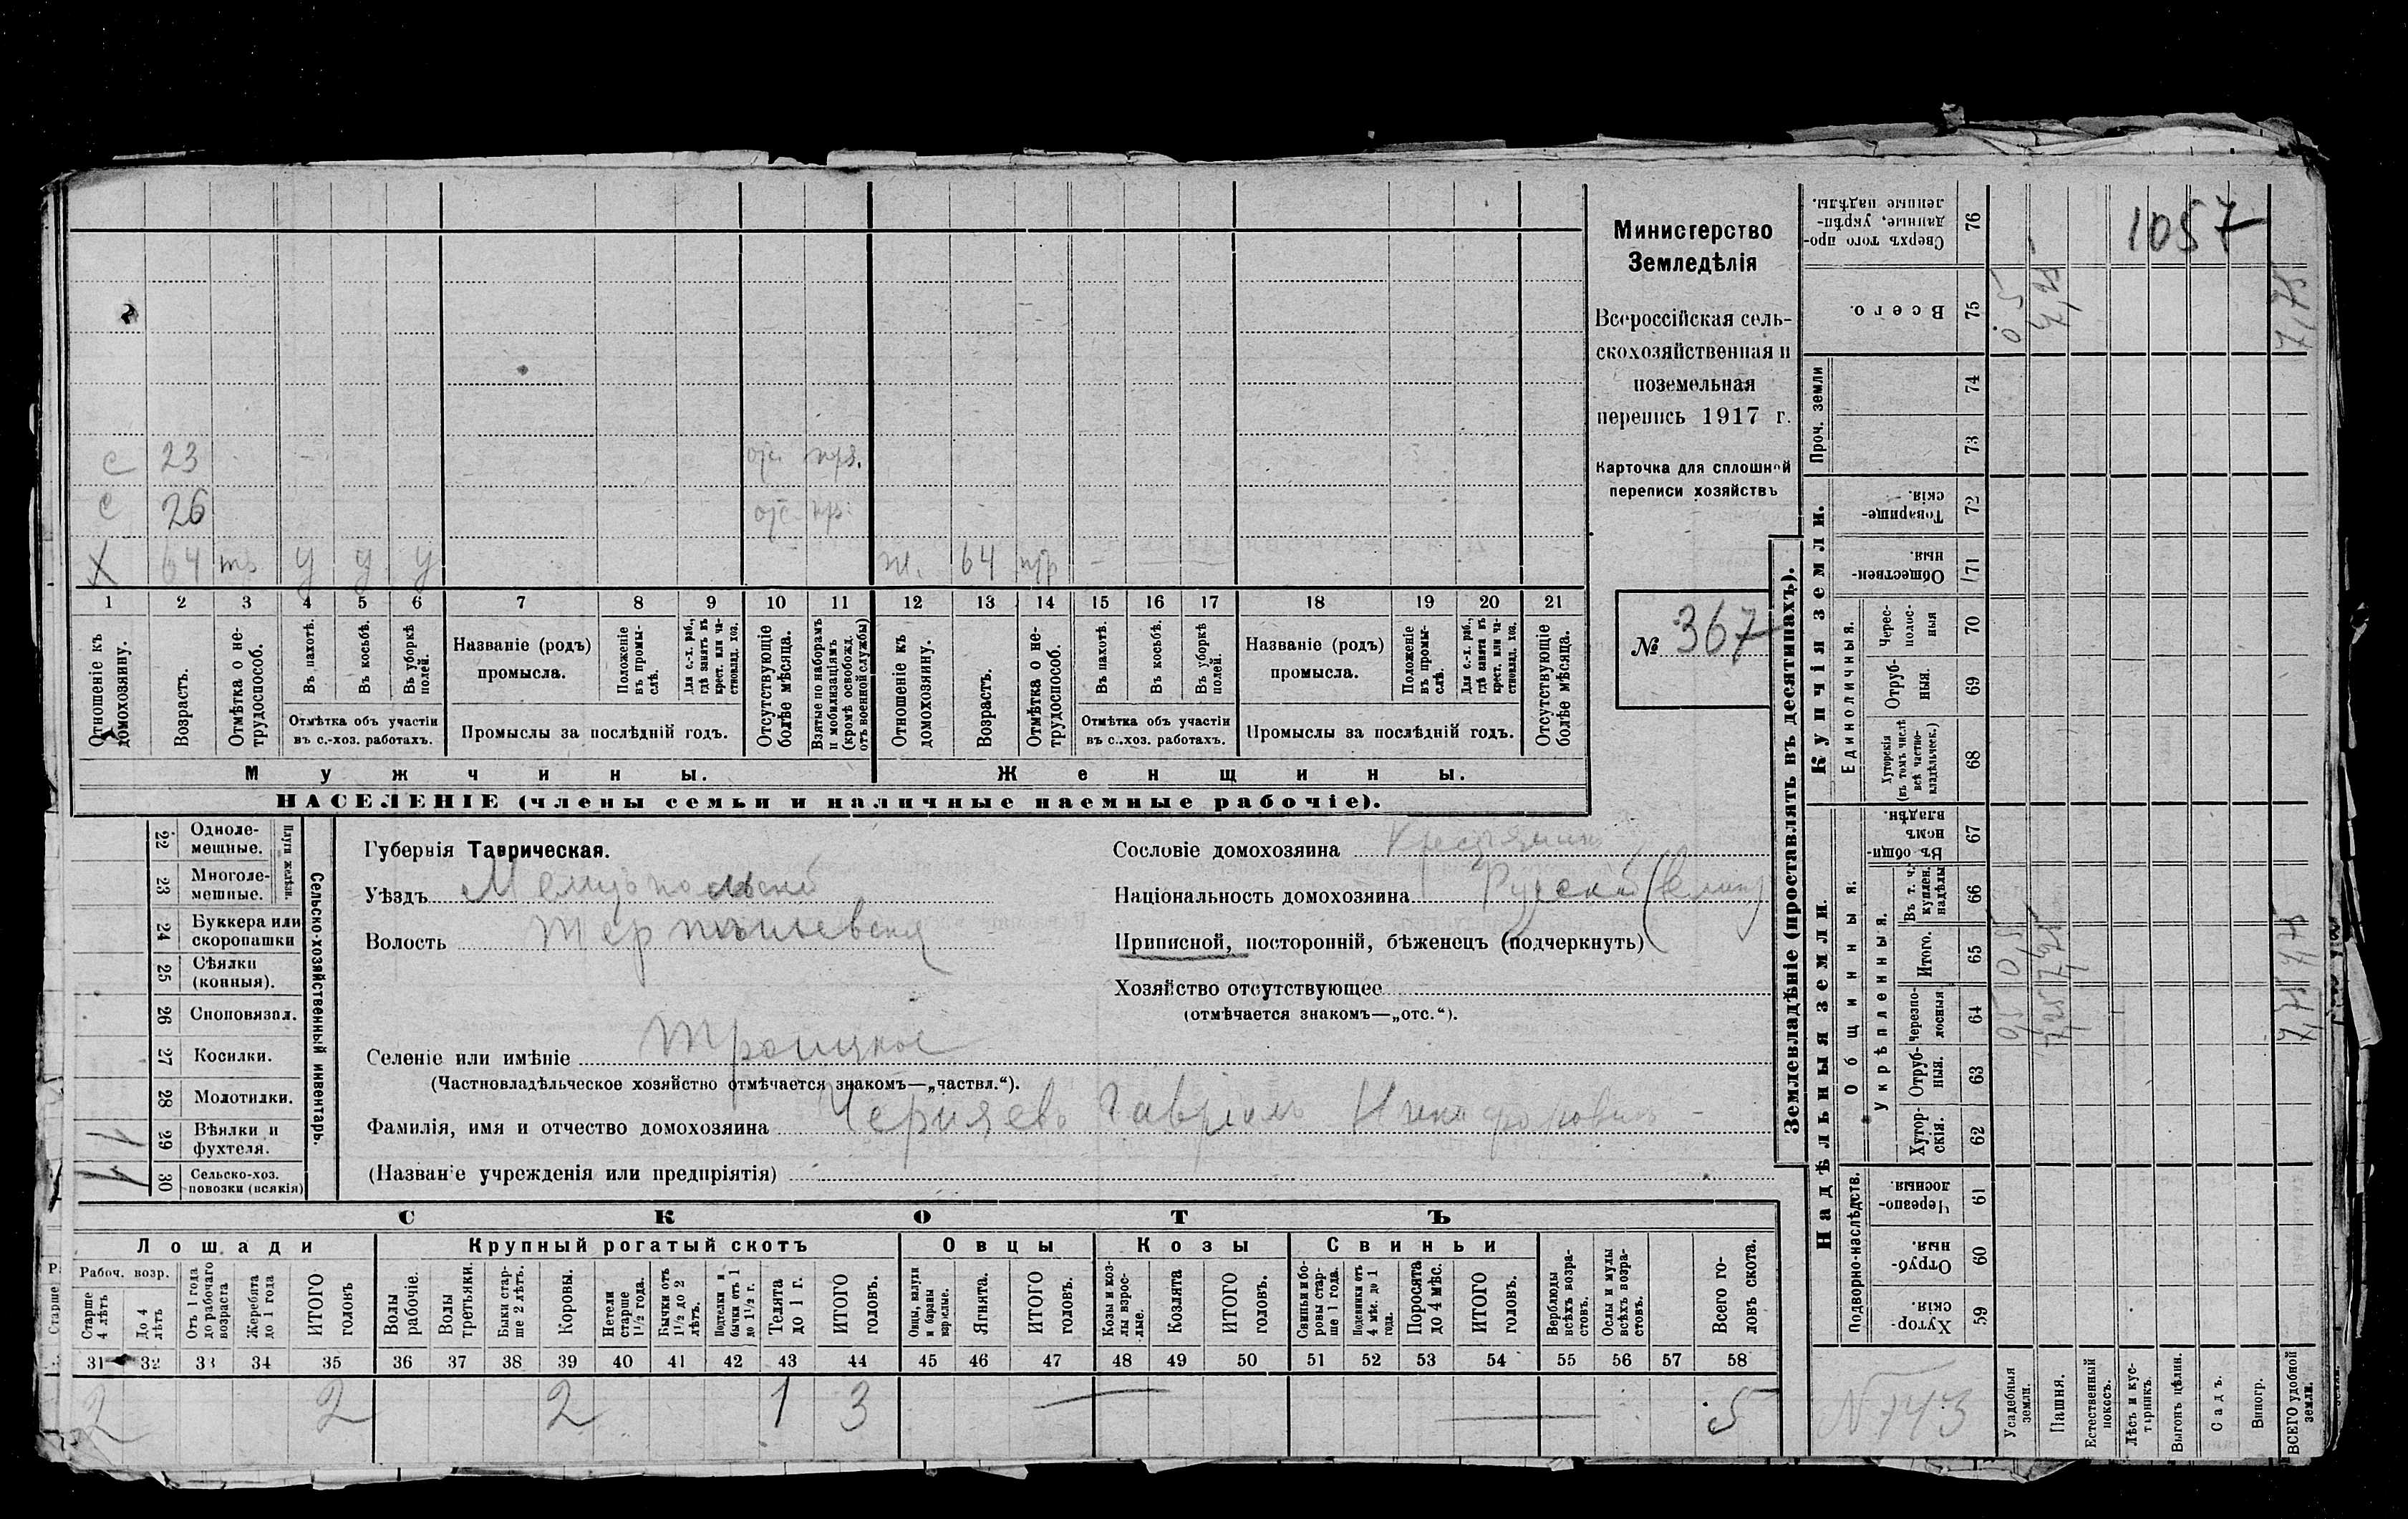 с 23 отс. пр.
с 26 отс. пр.
Х 64 тъ у у у ж. 64 пр
1 2 3 4 5 6 7 8 9 10 11 12 13 14 15 16 17 18 19 20 21
Отношеніе къ домохозяину.
Возрастъ.
Отмѣтка о не-
трудоспособ.
Въ пахотѣ.
Въ косьбѣ.
Въ уборкѣ
полей.
Отмѣтка объ участіи
въ с.-хоз. работахъ.
Названіе (родъ)
промысла.
Положеніе
въ промы-
слѣ.
Для с.-х. раб.,
гдѣ занятъ въ
крест. или ча-
стновлад. хоз.
Промыслы за послѣдній годъ.
Отсутствующіе
болѣе мѣсяца.
Взятые по наборамъ
и мобилизаціямъ
(кромѣ освобожд.
отъ военной службы)
Отношеніе къ
домохозяину.
Возрастъ.
Отмѣтка о не-
трудоспособ.
Въ пахотѣ.
Въ косьбѣ.
Въ уборкѣ
полей.
Отмѣтка объ участіи
въ с..хоз. работахъ.
Названіе (родъ)
промысла.
Положеніе
въ промы-
слѣ.
Для с.-х. раб.,
гдѣ занята въ
крест. или ча-
стновлад. хоз.
Промыслы за послѣдній годъ.
Отсутствующіе
болѣе мѣсяца.
Мужчины.
Женщины.
НАСЕЛЕНІЕ (члены семьи и наличные наемные рабочіе).
Министерство
Земледѣлія
Всероссійская сель-
скохозяйственная и
поземельная
перепись 1917 г.
Карточка для сплошной
переписи хозяйствъ
№ 367
22 Одноле-
мешные.
23 Многоле-
мешные.
Плуги желѣзн.
24 Буккера или
скоропашки
25 Сѣялки
(конныя).
26 Сноповязал.
27 Косилки.
28 Молотилки.
29 Вѣялки и
фухтеля.
1
30 Сельско-хоз.
повозки (всякія)
1
Сельско-хозяйственный инвентарь.
Губернія Таврическая.
Уѣздъ Мелитопольскій
Волость Терпѣньевская
Селеніе или имѣніе Троицкое
(Частновладѣльческое хозяйство отмѣчается знакомъ—„частвл.“).
Фамилія, имя и отчество домохозяина Гавріилъ
(Названіе учрежденія или предпріятія)
Сословіе домохозяина Крестьянинъ
Національность домохозяина Русскій (Велик)
Приписной, посторонній, бѣженецъ (подчеркнуть)
Хозяйство отсутствующее
(отмѣчается знакомъ—„отс.“).
СКОТЪ
Лошади
Крупный рогатый скотъ
Овцы
Козы
Свиньи
Рабоч. возр.
Старше
4 лѣтъ
До 4
лѣтъ
Отъ 1 года
до рабочаго
возраста
Жеребята
до 1 года
ИТОГО
головъ
Волы
рабочіе.
Волы
третьяки.
Быки стар-
ше 2 лѣтъ.
Коровы.
Нетели
старше
1½ года.
Бычки отъ
1½ до 2
лѣтъ.
Подтелки и
бычки отъ 1
до 1½ г.
Телята
до 1 г.
ИТОГО
головъ.
Овцы, валухи
и бараны
взрослые.
Ягнята.
ИТОГО
головъ.
Козы и коз-
лы взрос-
лые.
Козлята
ИТОГО
головъ.
Свиньи и бо-
ровы стар-
ше 1 года.
Подсвинки отъ
4 мѣс. до 1
года.
Поросята
до 4 мѣс.
ИТОГО
головъ.
Верблюды
всѣхъ возра-
стовъ.
Ослы и мулы
всѣхъ возра-
стовъ.
Всего го-
ловъ скота.
31 32 33 34 35 36 37 38 39 40 41 42 43 44 45 46 47 48 49 50 51 52 53 54 55 56 57 58
2 2 2 1 3 5
Землевладѣніе (проставлять въ десятинахъ).
Надѣльныя земли.
Купчія земли.
Проч. земли
Подворно-наслѣдств.
Общинныя.
Укрѣпленныя.
Единоличныя.
Сверхъ того про-
данные, укрѣп-
ленные надѣлы.
76
1057
Всего.
75
0,5
7,25
7,75
74
73
Товарище-
скія.
72
Обществен-
ныя.
71
Черес-
полос-
ныя
70
Отруб-
ныя.
69
Хуторскія
(въ томъ числѣ
всѣ частно-
владѣльческ.)
68
Въ общин-
номъ
владѣн.
67
Въ т. ч.
куплен.
надѣлы
66
Итого.
65
0,5
7,25
7,75
Черезпо-
лосныя
64
0,5
7,25
7,75
Отруб-
ныя.
63
Хутор-
скія.
62
Черезпо-
лосныя.
61
Отруб-
ныя.
60
Хутор-
скія.
59
N 743
Усадебныя
земли.
Пашня.
Естественный
покосъ.
Лѣсъ и кус-
тарникъ.
Выгонъ цѣлин.
Садъ.
Виногр.
ВСЕГО удобной
земли.